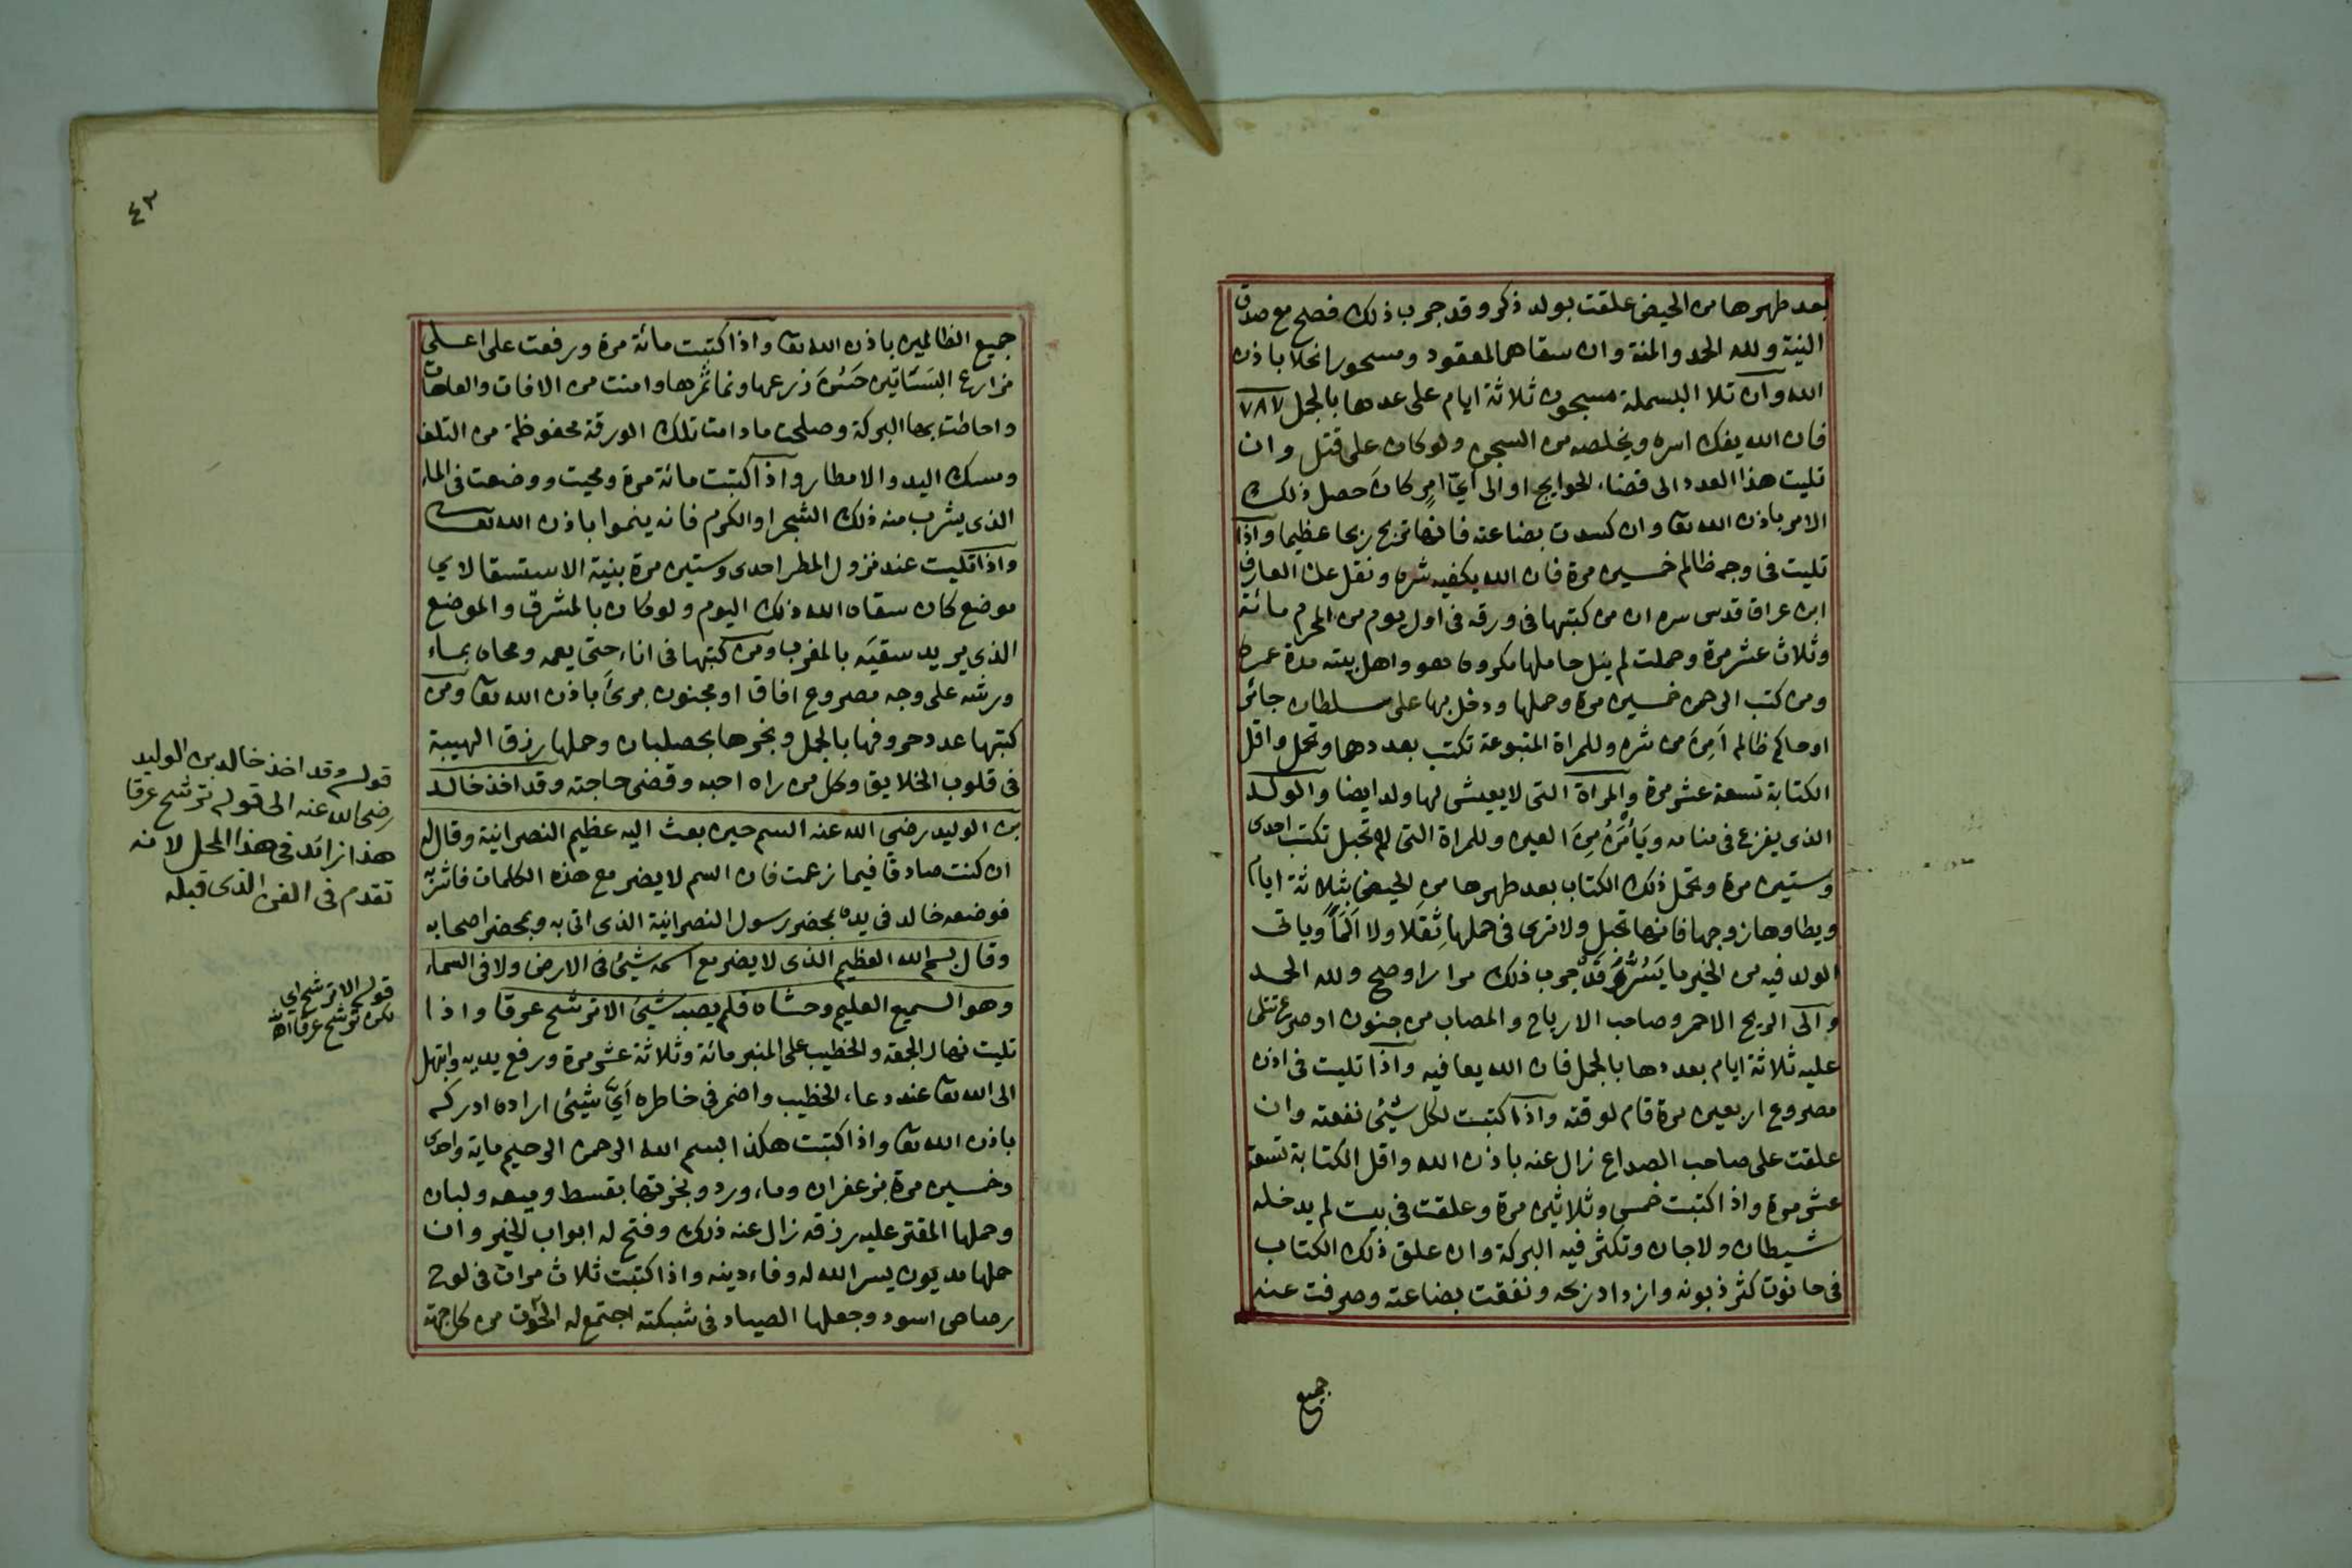 بعد طهرها من الحيض علقت بولد ذكر وقد جرب ذلك فصح مع صدق
النية ولله الحمد والمنة وان سقاها لمعقود ومسحور انحلا باذن
الله وان تلا البسملة مسجون ثلاثة ايام على عددها بالجمل ٧٨٧
فان الله يفك اسره ويخلصه من السجن ولو كان على قتل وان
تليت هذا العدد الى قضاء الحوايج او الى أيّ امرٍ كان حصل ذلك
الامر باذن الله تعا وان كسدت بضاعته فانها تربح ربحا عظيما واذا
تليت في وجه ظالم خمسين مرة فان الله يكفيه شره ونقل عن العارف
ابن عراق قدس سره ان من كتبها في ورقه في اول يوم من المحرم مائة
وثلاث عشر مرة وحملت لم ينل حاملها مكروه هو واهل بيته مدة عمره
ومن كتب الرحمن خمسين مرة وحملها ودخل بها على سلطان جائر
او حاكم ظالم اَمِنَ من شره وللمراة المتبوعة تكتب بعددها وتحمل واقل
الكتابة تسعة عشر مرة والمراة التى لا يعيش لها ولد ايضا والولد
الذى يفزع في منامه ويَأْمَنُ مِنَ العين وللمراة التى لم تحبل تكتب احدى
وستين مرة وتحمل ذلك الكتاب بعد طهرها من الحيض بثلاثة ايام
ويطاوها زوجها فانها تحبل ولا ترى في حملها ثِقَلا ولا اَلَماً وياتى
الولد فيه من الخير ما يَسُرُّ وَقَدْ جرب ذلك مرارا وصح ولله الحمد
والى الريح الاحمر وصاحب الارياح والمصاب من جنون او صرع تتلى
عليه ثلاثة ايام بعددها بالجمل فان الله يعافيه واذا تليت في اذن
مصروع اربعين مرة قام لوقته واذا كتبت لكل شيئ نفعته وان
علقت على صاحب الصداع زال عنه باذن الله واقل الكتابة تسعة
عشر مرة واذا كتبت خمس وثلاثين مرة وعلقت في بيت لم يدخله
شيطان ولا جان وتكثر فيه البركة وان علق ذلك الكتاب
في حانوت كثر زبونه وازداد ربحه ونفقت بضاعته وصرفت عنه
جميع
٤٣
جميع الظالمين باذن الله تعا واذا كتبت مائة مرة ورفعت على اعلى
مزارع البساتين حَسُنَ زرعها ونما ثمرها وامنت من الافات والعاهات
واحاطت بها البركة وصلحت ما دامت تلك الورقة محفوظة من التلف
ومسك اليد والامطار واذا كتبت مائة مرة ومحيت ووضعت في الماء
الذى يشرب منه ذلك الشجر او الكرم فانه ينموا باذن الله تعا
واذا تليت عند نزول المطر احدى وستين مرة بنية الاستسقا لاي
موضع كان سقاه الله ذلك اليوم ولو كان بالمشرق والموضع
الذى يريد سقيَه بالمغرب ومن كتبها في اناء حتى يعمه ومحاه بماء
ورشه على وجه مصروع افاق او مجنون برئَ باذن الله تعا ومن
كتبها عدد حروفها بالجمل وبخرها بحصلبان وحملها رزق الهيبة
في قلوب الخلايق وكل من راه احبه وقضى حاجته وقد اخذ خالد
بن الوليد رضي الله عنه السم حين بعث اليه عظيم النصرانية وقال له
ان كنت صادقا فيما زعمت فان السم لا يضر مع هذه الكلمات فاشربه
فوضعه خالد في يده بمحضر رسول النصرانية الذى اتى به وبمحضر اصحابه
وقال بسم الله العظيم الذى لا يضر مع اسمه شيئ في الارض ولا في السماء
وهو السميع العليم وحشاه فلم يصبه شيئ الا ترشح عرقا واذا
تليت نهار الجمعة والخطيب على المنبر مائة وثلاثة عشر مرة ورفع يديه وابتهل
الى الله تعا عند دعاء الخطيب واضمر في خاطره أيَّ شيئ اراده ادركه
باذن الله تعا واذا كتبت هكذا بسم الله الرحمن الرحيم ماية واحدى
وخمسين مرة بزعفران وماء ورد وبخرتها بقسط وميعه ولبان
وحملها المقتر عليه رزقه زال عنه ذلك وفتح له ابواب الخير وان
حملها مديون يسر الله له وفاء دينه واذا كتبت ثلاث مرات في لوح
رصاص اسود وجعلها الصياد في شبكته اجتمع له الحوت من كل جهة
قوله وقد اخذ خالد بن الوليد
رضى الله عنه الى قوله ترشح عرقا
هذا زائد في هذا المحل لانه
تقدم في الفن الذى قبله
قوله الا ترشح اي
لكن ترشح عرقا